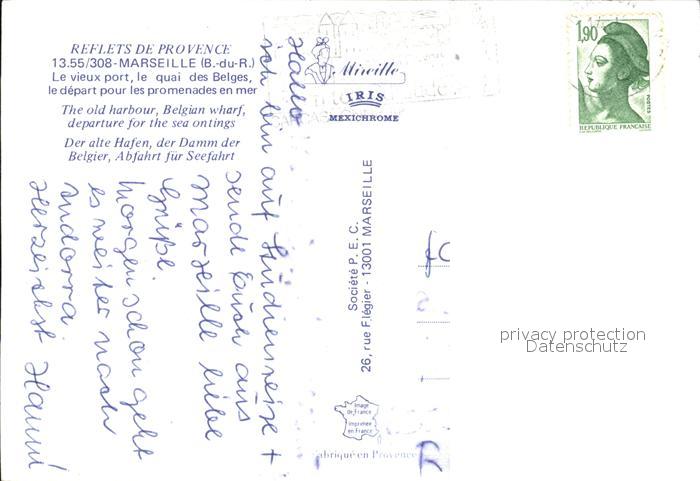 REFLETS DE PROVENCE
13.55/308-MARSEILLE (B.-du-R.)
Le vieux port, le quai des Belges,
le départ pour les promenades en mer
The old harbour, Belgian wharf,
departure for the sea ontings
Der alte Hafen, der Damm der
Belgier, Abfahrt für Seefahrt
Mireille
IRIS
MEXICHROME
1,90
POSTES
REPUBLIQUE FRANÇAISE
Hallo
ich bin auf Studienreise +
sende Euch aus
Marseille liebe
Grüße.
Morgen schon geht
es weiter nach
Andorra.
Herzlichst Hanni
Société P. E. C.
26, rue F.légier - 13001 MARSEILLE
Image
de France
Imprimée
en France
abriqué en Provence
privacy protection
Datenschutz